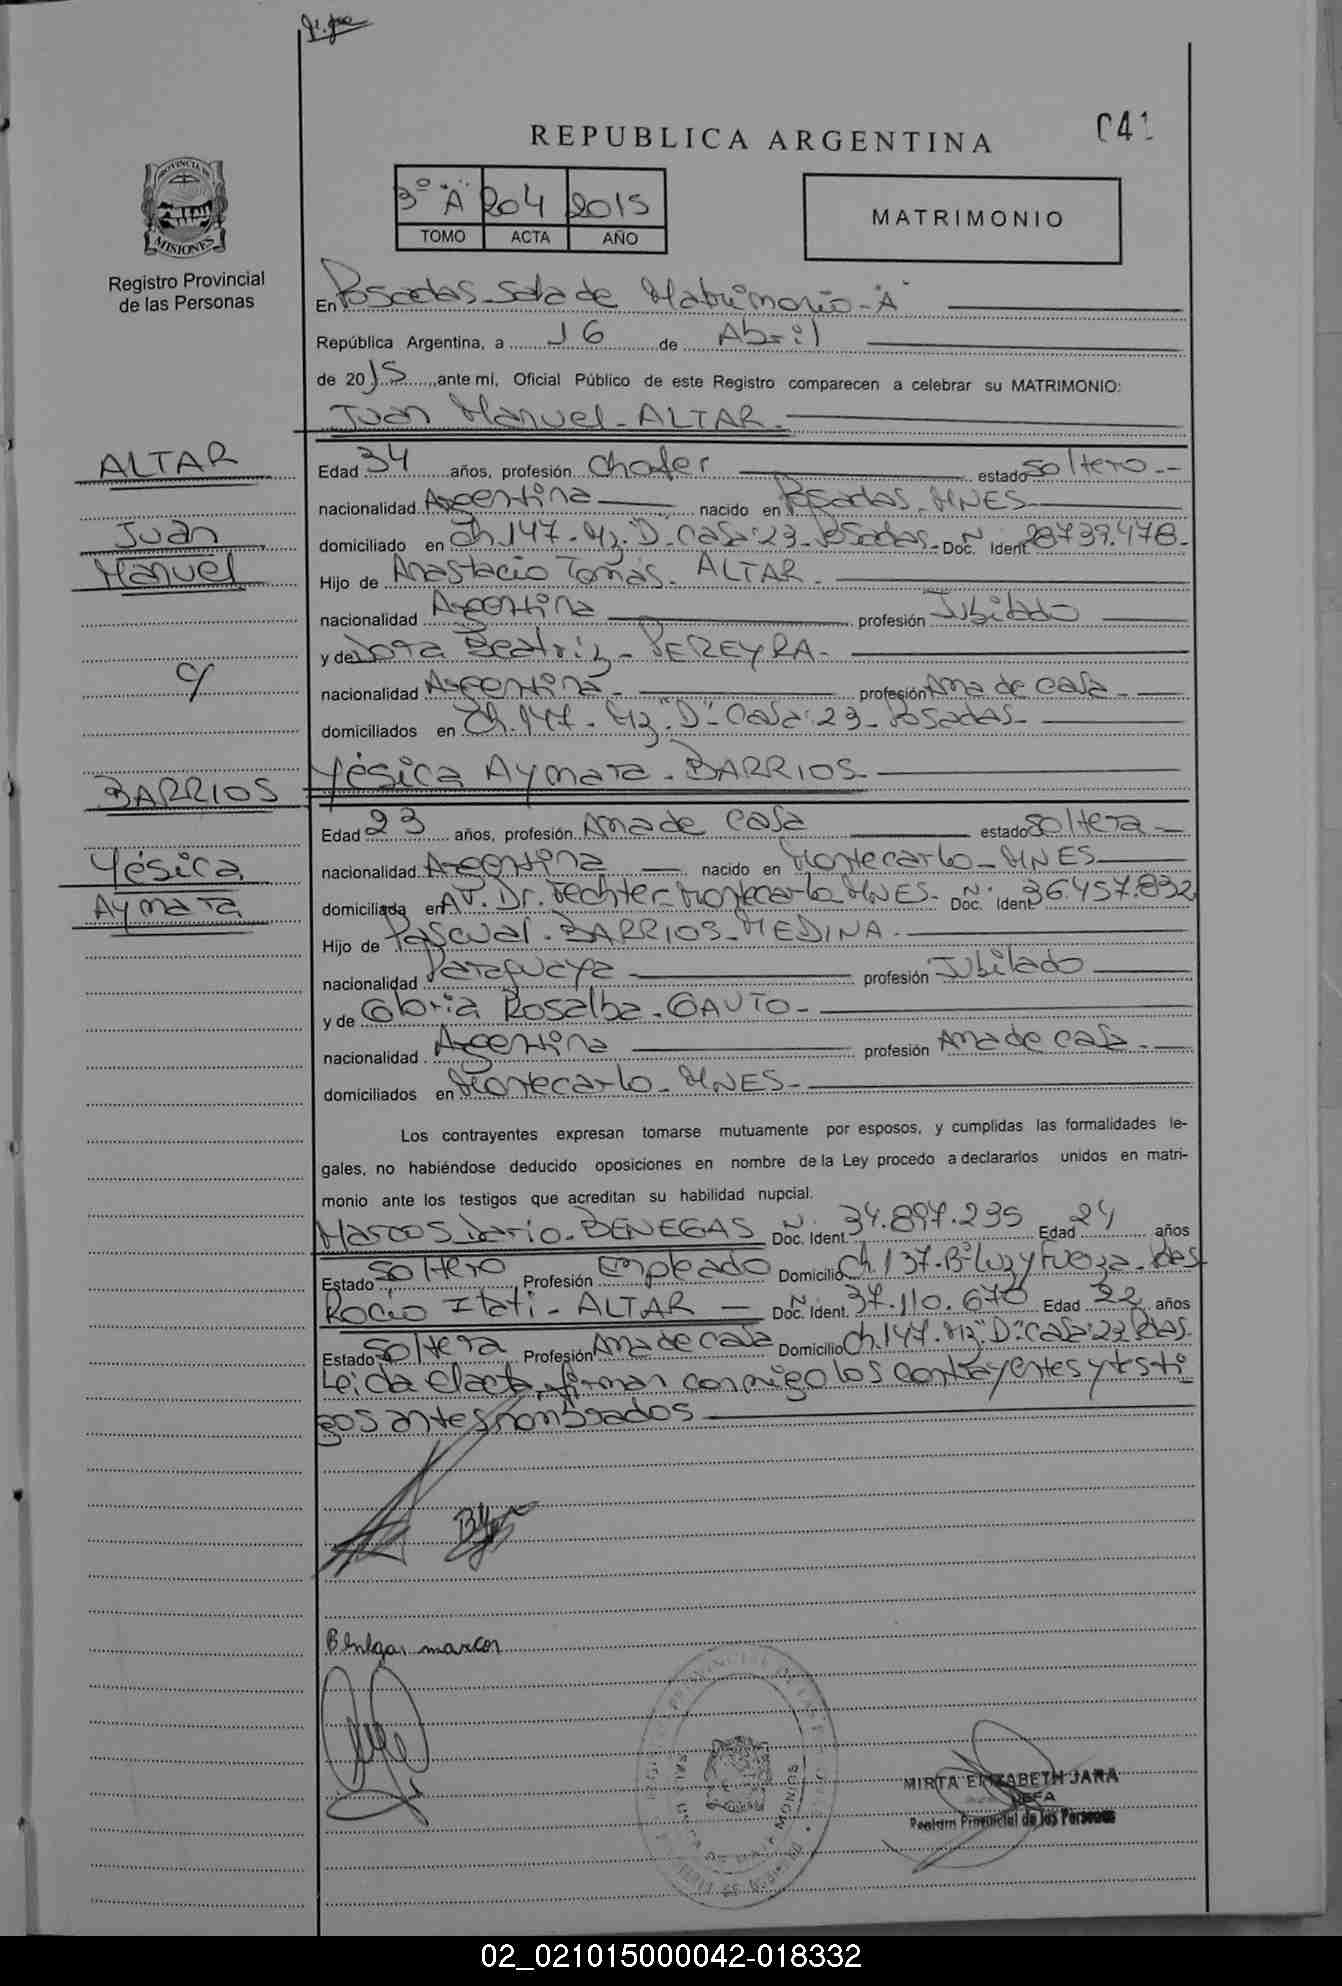 041
REPUBLICA ARGENTINA
3º "A" 204 2015
TOMO ACTA AÑO
MATRIMONIO
PROVINCIA DE
MISIONES
Registro Provincial
de las Personas
En Posadas-Sala de Matrimonio-"A"
República Argentina, a 16 de Abril
de 2015, ante mí, Oficial Público de este Registro comparecen a celebrar su MATRIMONIO:
Juan Manuel-ALTAR.
ALTAR
Juan
Manuel
c/
BARRIOS
Yésica
Aymara
Edad 34 años, profesión chofer estado soltero.-
nacionalidad Argentina nacido en Posadas-MNES
domiciliado en Ch.147-Mz."D"-Casa:23-Posadas-Doc. Ident. Nº 28739.478-
Hijo de Anastacio Tomás-ALTAR-
nacionalidad Argentina profesión Jubilado
y de Dora Beatriz-PEREYRA-
nacionalidad Argentina- profesión Ama de casa-
domiciliados en Ch.147-Mz"D"-Casa:23-Posadas-
Yésica Aymara-BARRIOS-
Edad 23 años, profesión Ama de casa estado soltera-
nacionalidad Argentina nacido en Montecarlo-MNES
domiciliada en AV. Dr. Fechter-Montecarlo MNES- Doc. Ident. Nº 36.457.832
Hijo de Pascual-BARRIOS-MEDINA-
nacionalidad Paraguaya profesión Jubilado
y de Gloria Rosalba-GAUTO-
nacionalidad Argentina profesión Ama de casa-
domiciliados en Montecarlo-MNES-
Los contrayentes expresan tomarse mutuamente por esposos, y cumplidas las formalidades le-
gales, no habiéndose deducido oposiciones en nombre de la Ley procedo a declararlos unidos en matri-
monio ante los testigos que acreditan su habilidad nupcial.
Marcos Dario-BENEGAS Doc. Ident. Nº 34.897.235 Edad 24 años
Estado soltero Profesión Empleado Domicilio Ch.137-Bº Luz y Fuerza-Pdas
Rocio Itati-ALTAR- Doc. Ident. Nº 37.110.670 Edad 22 años
Estado Soltera Profesión Ama de casa Domicilio Ch.147-Mz"D"-Casa:23 Pdas.
Leída el acta, firman conmigo los contrayentes y testi-
gos antes nombrados
Benegas marcos
MIRTA ELIZABETH JARA
JEFA
Registro Provincial de las Personas
02_021015000042-018332